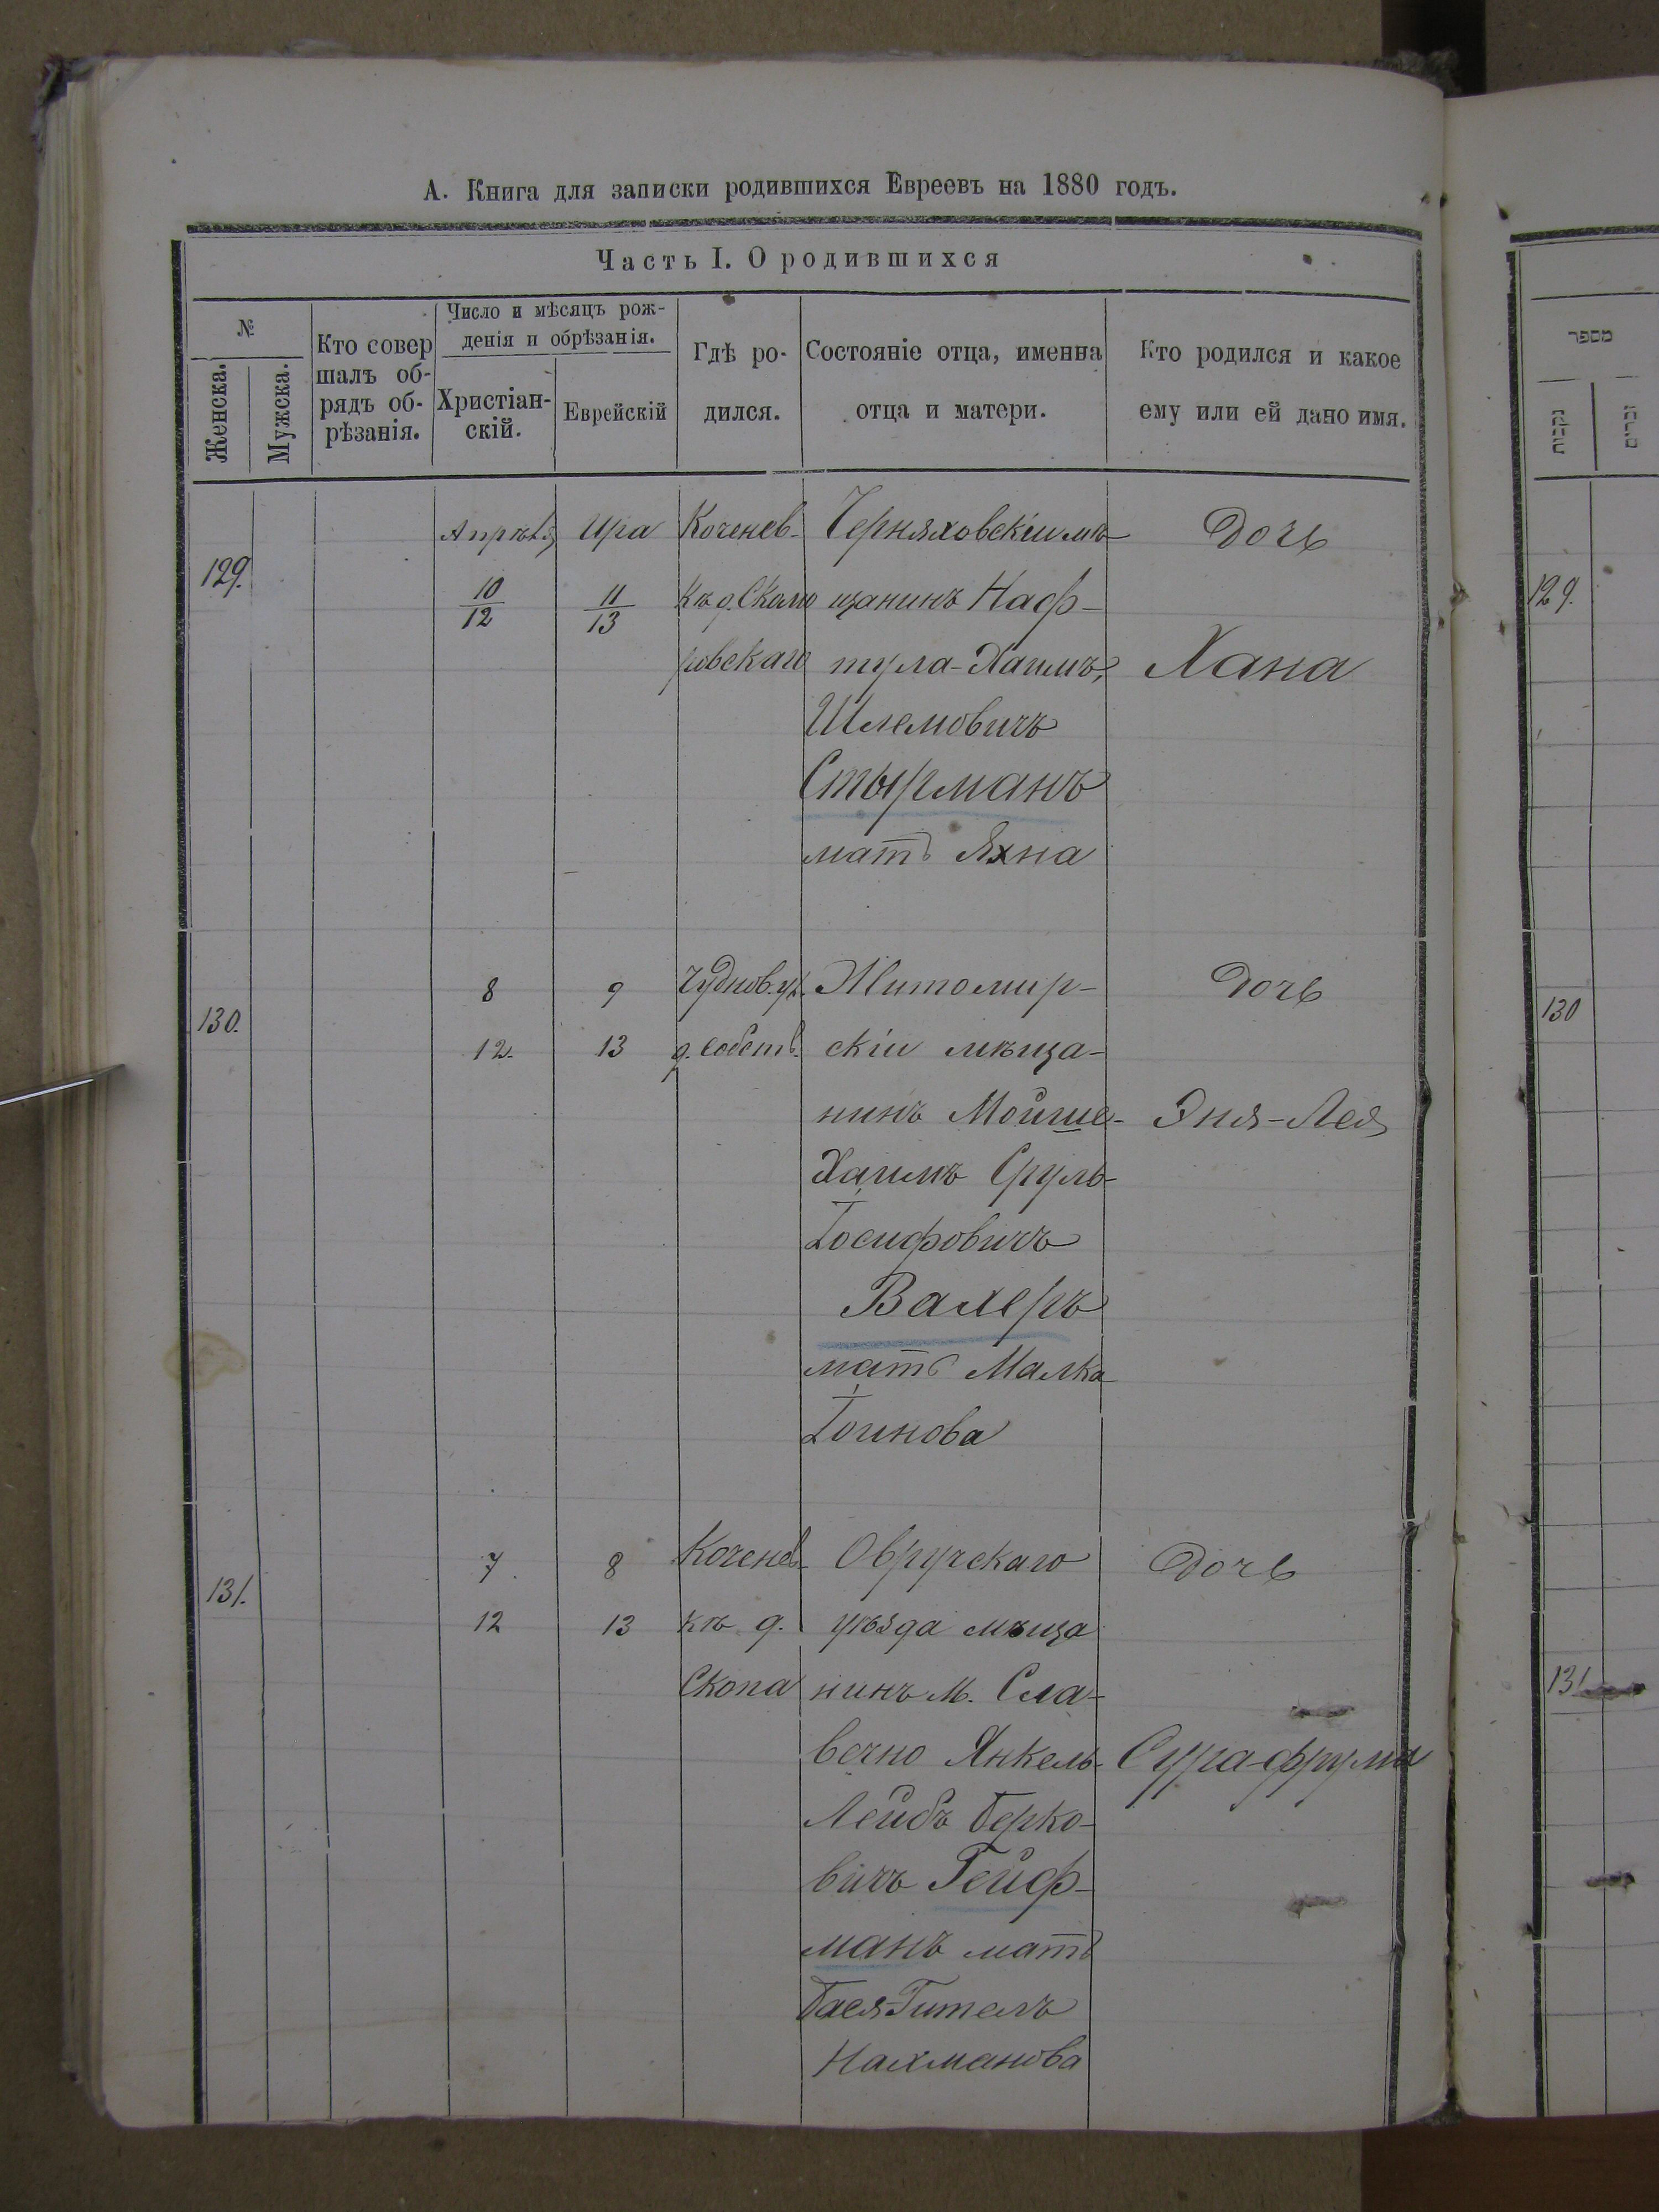 А. Книга для записки родившихся Евреевъ на 1880 годъ.
Часть I. О родившихся
№
Женска.
Мужска.
Кто совер
шалъ об-
рядъ об-
рѣзанія.
Число и мѣсяцъ рож-
денія и обрѣзанія.
Христіан-
скій.
Еврейскій
Гдѣ ро-
дился.
Состояніе отца, именна
отца и матери.
Кто родился и какое
ему или ей дано имя.
129.
Апрѣля
10
12
Ира
11
13
Коченев-
ровскаго
Черняховскіи мѣ-
щанинъ Наф-
тула-Хаимъ,
Шлемовичъ
Стырманъ
мать Яхна
Дочь
Хана
130.
8
12.
9
13
Чуднов. ул.
д. собств.
Житомир-
скіи мѣща-
нинъ Мойше-
Хаимъ Сруль-
Іосифовичъ
Вахеръ
мать Малка
Іоинова
Дочь
Эня-Лея
131.
7
12
8
13
Коченев-
къ д.
Скопа
Овручскаго
уѣзда мѣща
нинъ м. Сла-
вечно Янкель-
Лейбъ Берко-
вичъ Гейф-
манъ мать
Бася-Гитель
Нахманова
Дочь
Сура-фрума
מספר
נקבות
זכרים
129.
130
131